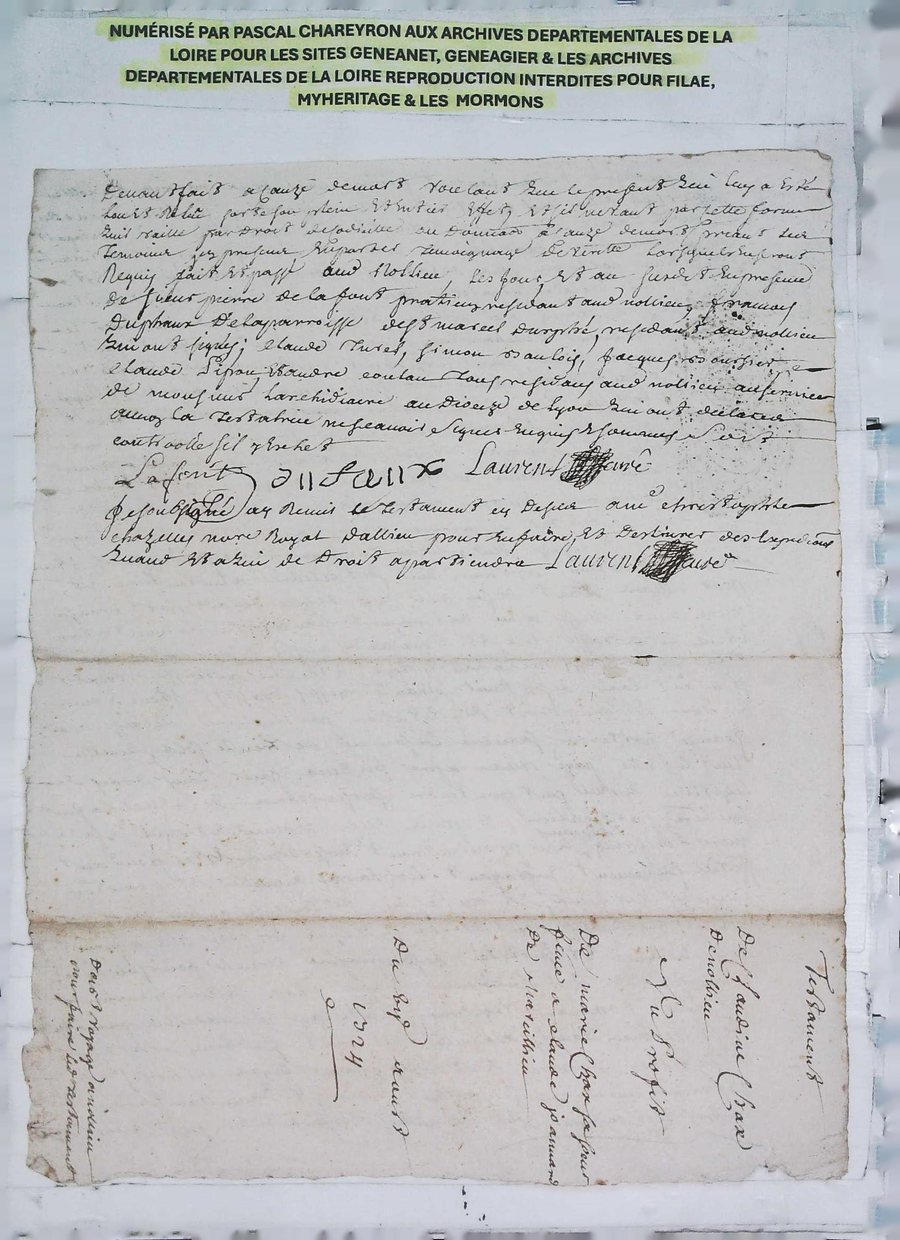 NUMÉRISÉ PAR PASCAL CHAREYRON AUX ARCHIVES DEPARTEMENTALES DE LA
LOIRE POUR LES SITES GENEANET, GENEAGIER & LES ARCHIVES
DEPARTEMENTALES DE LA LOIRE REPRODUCTION INTERDITES POUR FILAE,
MYHERITAGE & LES MORMONS
devant fait a cauze de mort voelant que le present qui luy a esté
leu et relu sorte son plein et entier effet, et sil ne vaut par cette forme
quil vaille par droit de codicille ou donnation a cauze de mort priant les
temoins icy presens en porter temoignage de verité lorsquils en seront
requis fait et passé aud nollieu, les jour et an susd en presence
de sieur pierre de la font praticien residant aud nollieu, françois
duphaux de la parroisse de st marcel durphé, residant aud nollieu
qui ont signés; claude turel, simon Jacques
claude tous residans aud nollieu au service
de monsieur larchidiacre au dioceze de lyon qui ont déclaré
avec la testatrice ne sçavoir signer enquis et sommés sera
controollé sil y echet
Lafont dufaux Laurent curé
Je soubsigné ay remis le testament cy dessus a me christophle
chazelles nore royal dallieu pour en faire, et delivrer des expeditions
quand et a qui de droit apartiendra Laurent curé
Testament
De Claudine Chax
de nollieu
Au Profit
De marie Chax sa sœur
femme a claude
de marcillieu
Du aoust
1724
voyage a nollieu
pour faire led testament